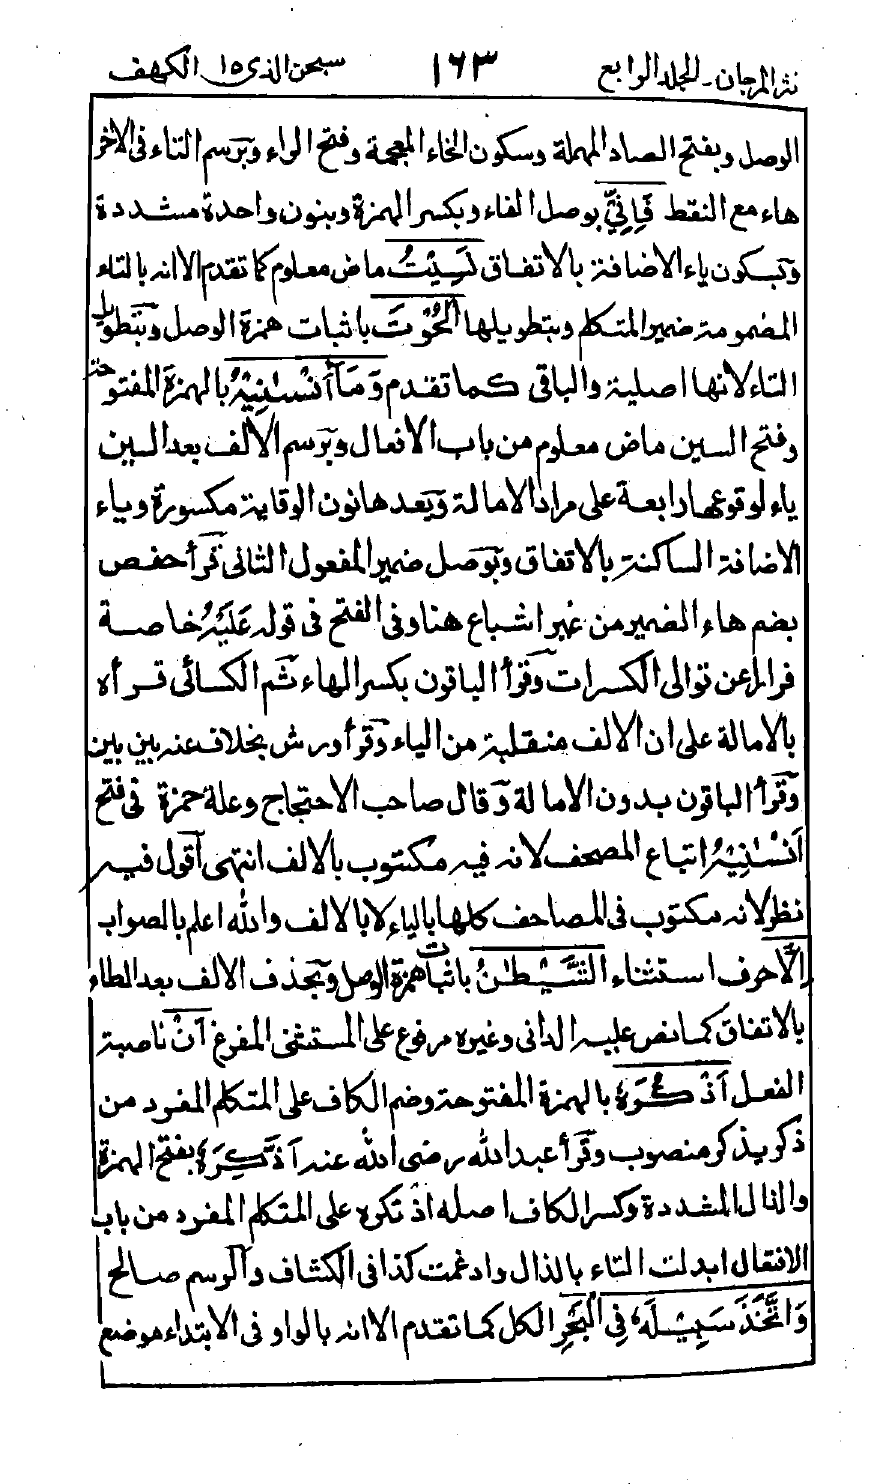 نثر المرجان ـ المجلد الرابع ١٦٣ سبحن الذی ١٥ الكهف
الوصل وبفتح الصاد المهملة وسكون الخاء المعجمة وفتح الراء وبرسم التاء فی الاخر
هاء مع النقط فَاِنِّیْ بوصل الفاء وبكسر الهمزة وبنون واحدة مشددة
وبسكون ياء الاضافة بالاتفاق نَسِيْتُ ماض معلوم كما تقدم الا انه بالتاء
المضمومة ضمير المتكلم وبتطويلها الْحُوْتَ باثبات همزة الوصل وبتطويل
التاء لانها اصلية والباقی كما تقدم وَمَآ اَنْسٰنِيْهُ بالهمزة المفتوحة
وفتح السين ماض معلوم من باب الافعال وبرسم الالف بعد السين
ياء لوقوعها رابعة علی مراد الامالة وبعدها نون الوقاية مكسورة وياء
الاضافة الساكنة بالاتفاق وبوصل ضمير المفعول الثانی قرأ حفص
بضم هاء الضمير من غير اشباع هنا وفی الفتح فی قوله عَلَيْهُ خاصة
فرارا عن توالی الكسرات وقرأ الباقون بكسر الهاء ثم الكسائی قرأه
بالامالة علی ان الالف منقلبة من الياء وقرأ ورش بخلاف عنه بين بين
وقرأ الباقون بدون الامالة وقال صاحب الاحتجاج وعلة حمزة فی فتح
اَنْسٰنِيْهُ اتباع المصحف لانه فيه مكتوب بالالف انتهی اقول فيه
نظر لانه مكتوب فی المصاحف كلها بالياء لا بالالف والله اعلم بالصواب
اِلَّا حرف استثناء الشَّيْطٰنُ باثبات همزة الوصل وبحذف الالف بعد الطاء
بالاتفاق كما نص عليه الدانی وغيره مرفوع علی المستثنی المفرغ اَنْ ناصبة
الفعل اَذْكُرَهٗ بالهمزة المفتوحة وضم الكاف علی المتكلم المفرد من
ذكر يذكر منصوب وقرأ عبدالله رضی الله عنه اَذَّكِرَهٗ بفتح الهمزة
والذال المشددة وكسر الكاف اصله اذتكره علی المتكلم المفرد من باب
الافتعال ابدلت التاء بالذال وادغمت كذا فی الكشاف والرسم صالح
وَاتَّخَذَ سَبِيْلَهٗ فِی الْبَحْرِ الكل كما تقدم الا انه بالواو فی الابتداء موضع